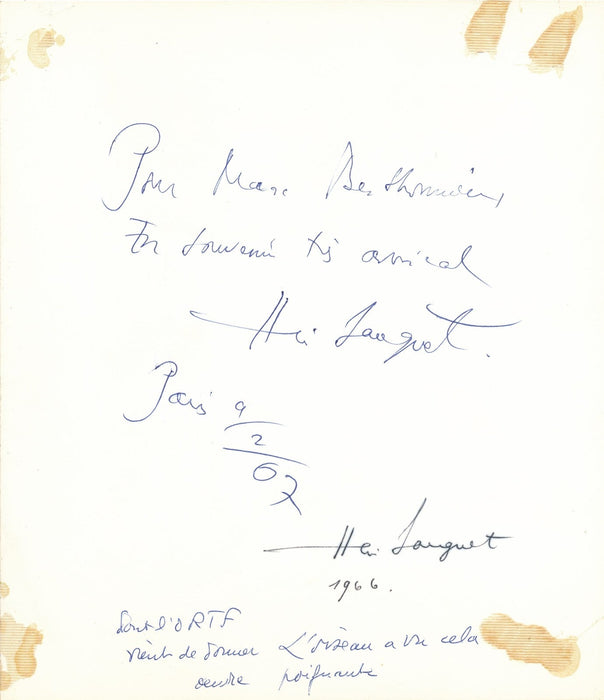 Pour Marc Berthomieu,
En souvenir très amical
Henri Sauguet.
Paris 9
2
67
Henri Sauguet
1966.
dont l'ORTF
vient de donner L'oiseau a vu cela
œuvre poignante